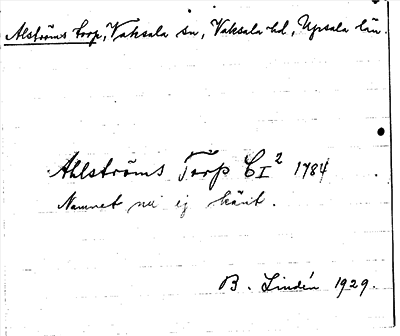 Alströms torp, Vaksala sn, Vaksala hd, Upsala län.
Ahlströms Torp CI² 1784
Namnet nu ej känt.
B. Lindén 1929.